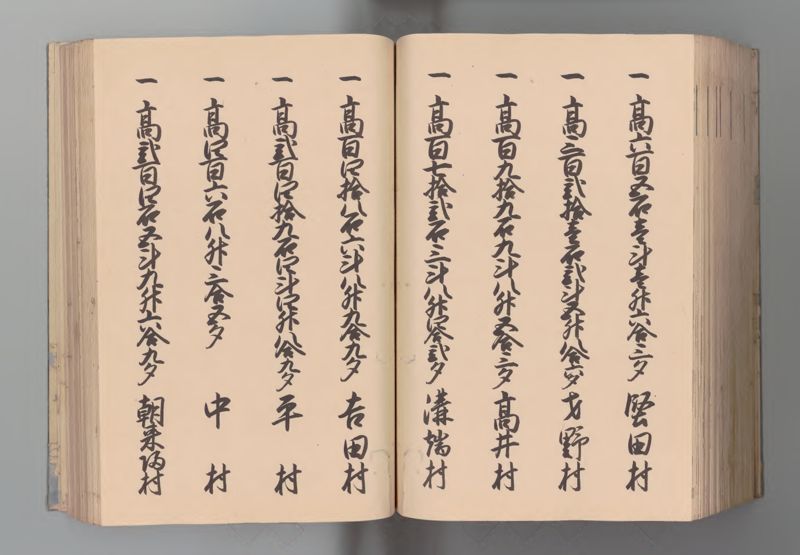 一 高六百五石壱斗壱升六合三夕 堅田村
一 高三百弐拾壱石弐斗五升八合六夕 才野村
一 高百九拾九石九斗八升五合三夕 高井村
一 高百七拾弐石三斗八升四合弐夕 溝端村
一 高百四拾八石六斗八升九合九夕 吉田村
一 高弐百四拾九石四斗四升八合九夕 平村
一 高四百六石八升三合五夕 中村
一 高弐百四石五斗九升六合九夕 朝来帰村